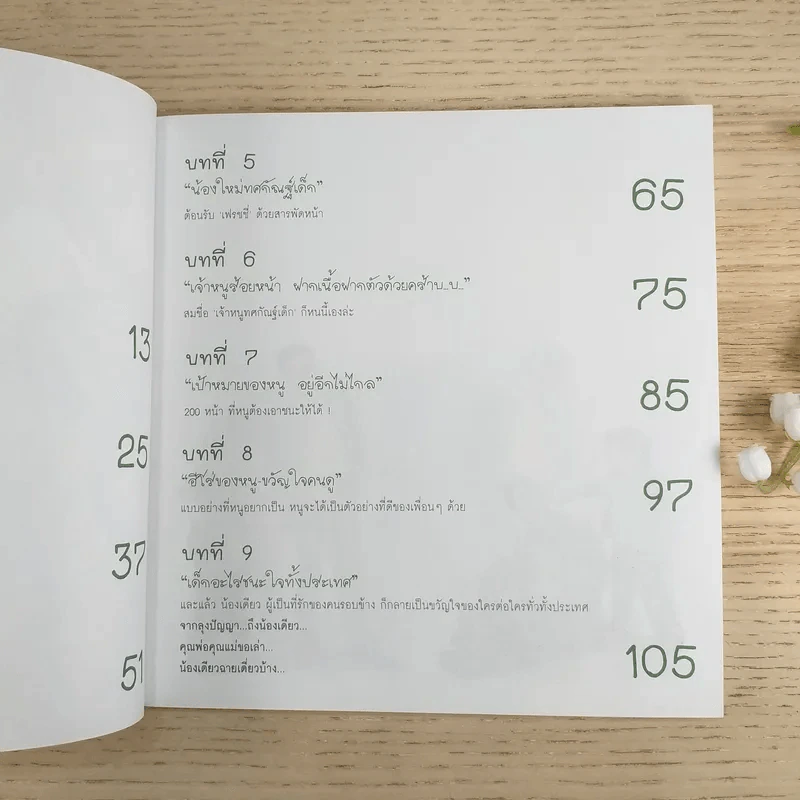 13
25
37
51
บทที่ 5
“น้องใหม่ทศกัณฐ์เด็ก”
65
ต้อนรับ 'เฟรชชี่' ด้วยสารพัดหน้า
บทที่ 6
“เจ้าหนูร้อยหน้า ฝากเนื้อฝากตัวด้วยคร้าบ..บ..”
75
สมชื่อ 'เจ้าหนูทศกัณฐ์เด็ก' ก็หนนี้เองล่ะ
บทที่ 7
“เป้าหมายของหนู อยู่อีกไม่ไกล”
85
200 หน้า ที่หนูต้องเอาชนะให้ได้ !
บทที่ 8
“ฮีโร่ของหนู-ขวัญใจคนดู”
97
แบบอย่างที่หนูอยากเป็น หนูจะได้เป็นตัวอย่างที่ดีของเพื่อนๆ ด้วย
บทที่ 9
“เด็กอะไรชนะใจทั้งประเทศ”
และแล้ว น้องเดียว ผู้เป็นที่รักของคนรอบข้าง ก็กลายเป็นขวัญใจของใครต่อใครทั่วทั้งประเทศ
จากลุงปัญญา...ถึงน้องเดียว...
คุณพ่อคุณแม่ขอเล่า...
105
น้องเดียวฉายเดี่ยวบ้าง...